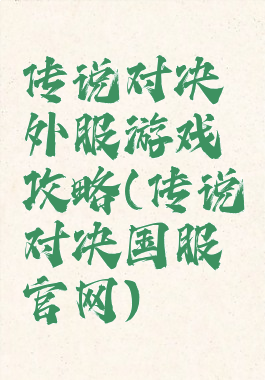 传说对决
外服游戏
攻略(传说
对决国服
官网)